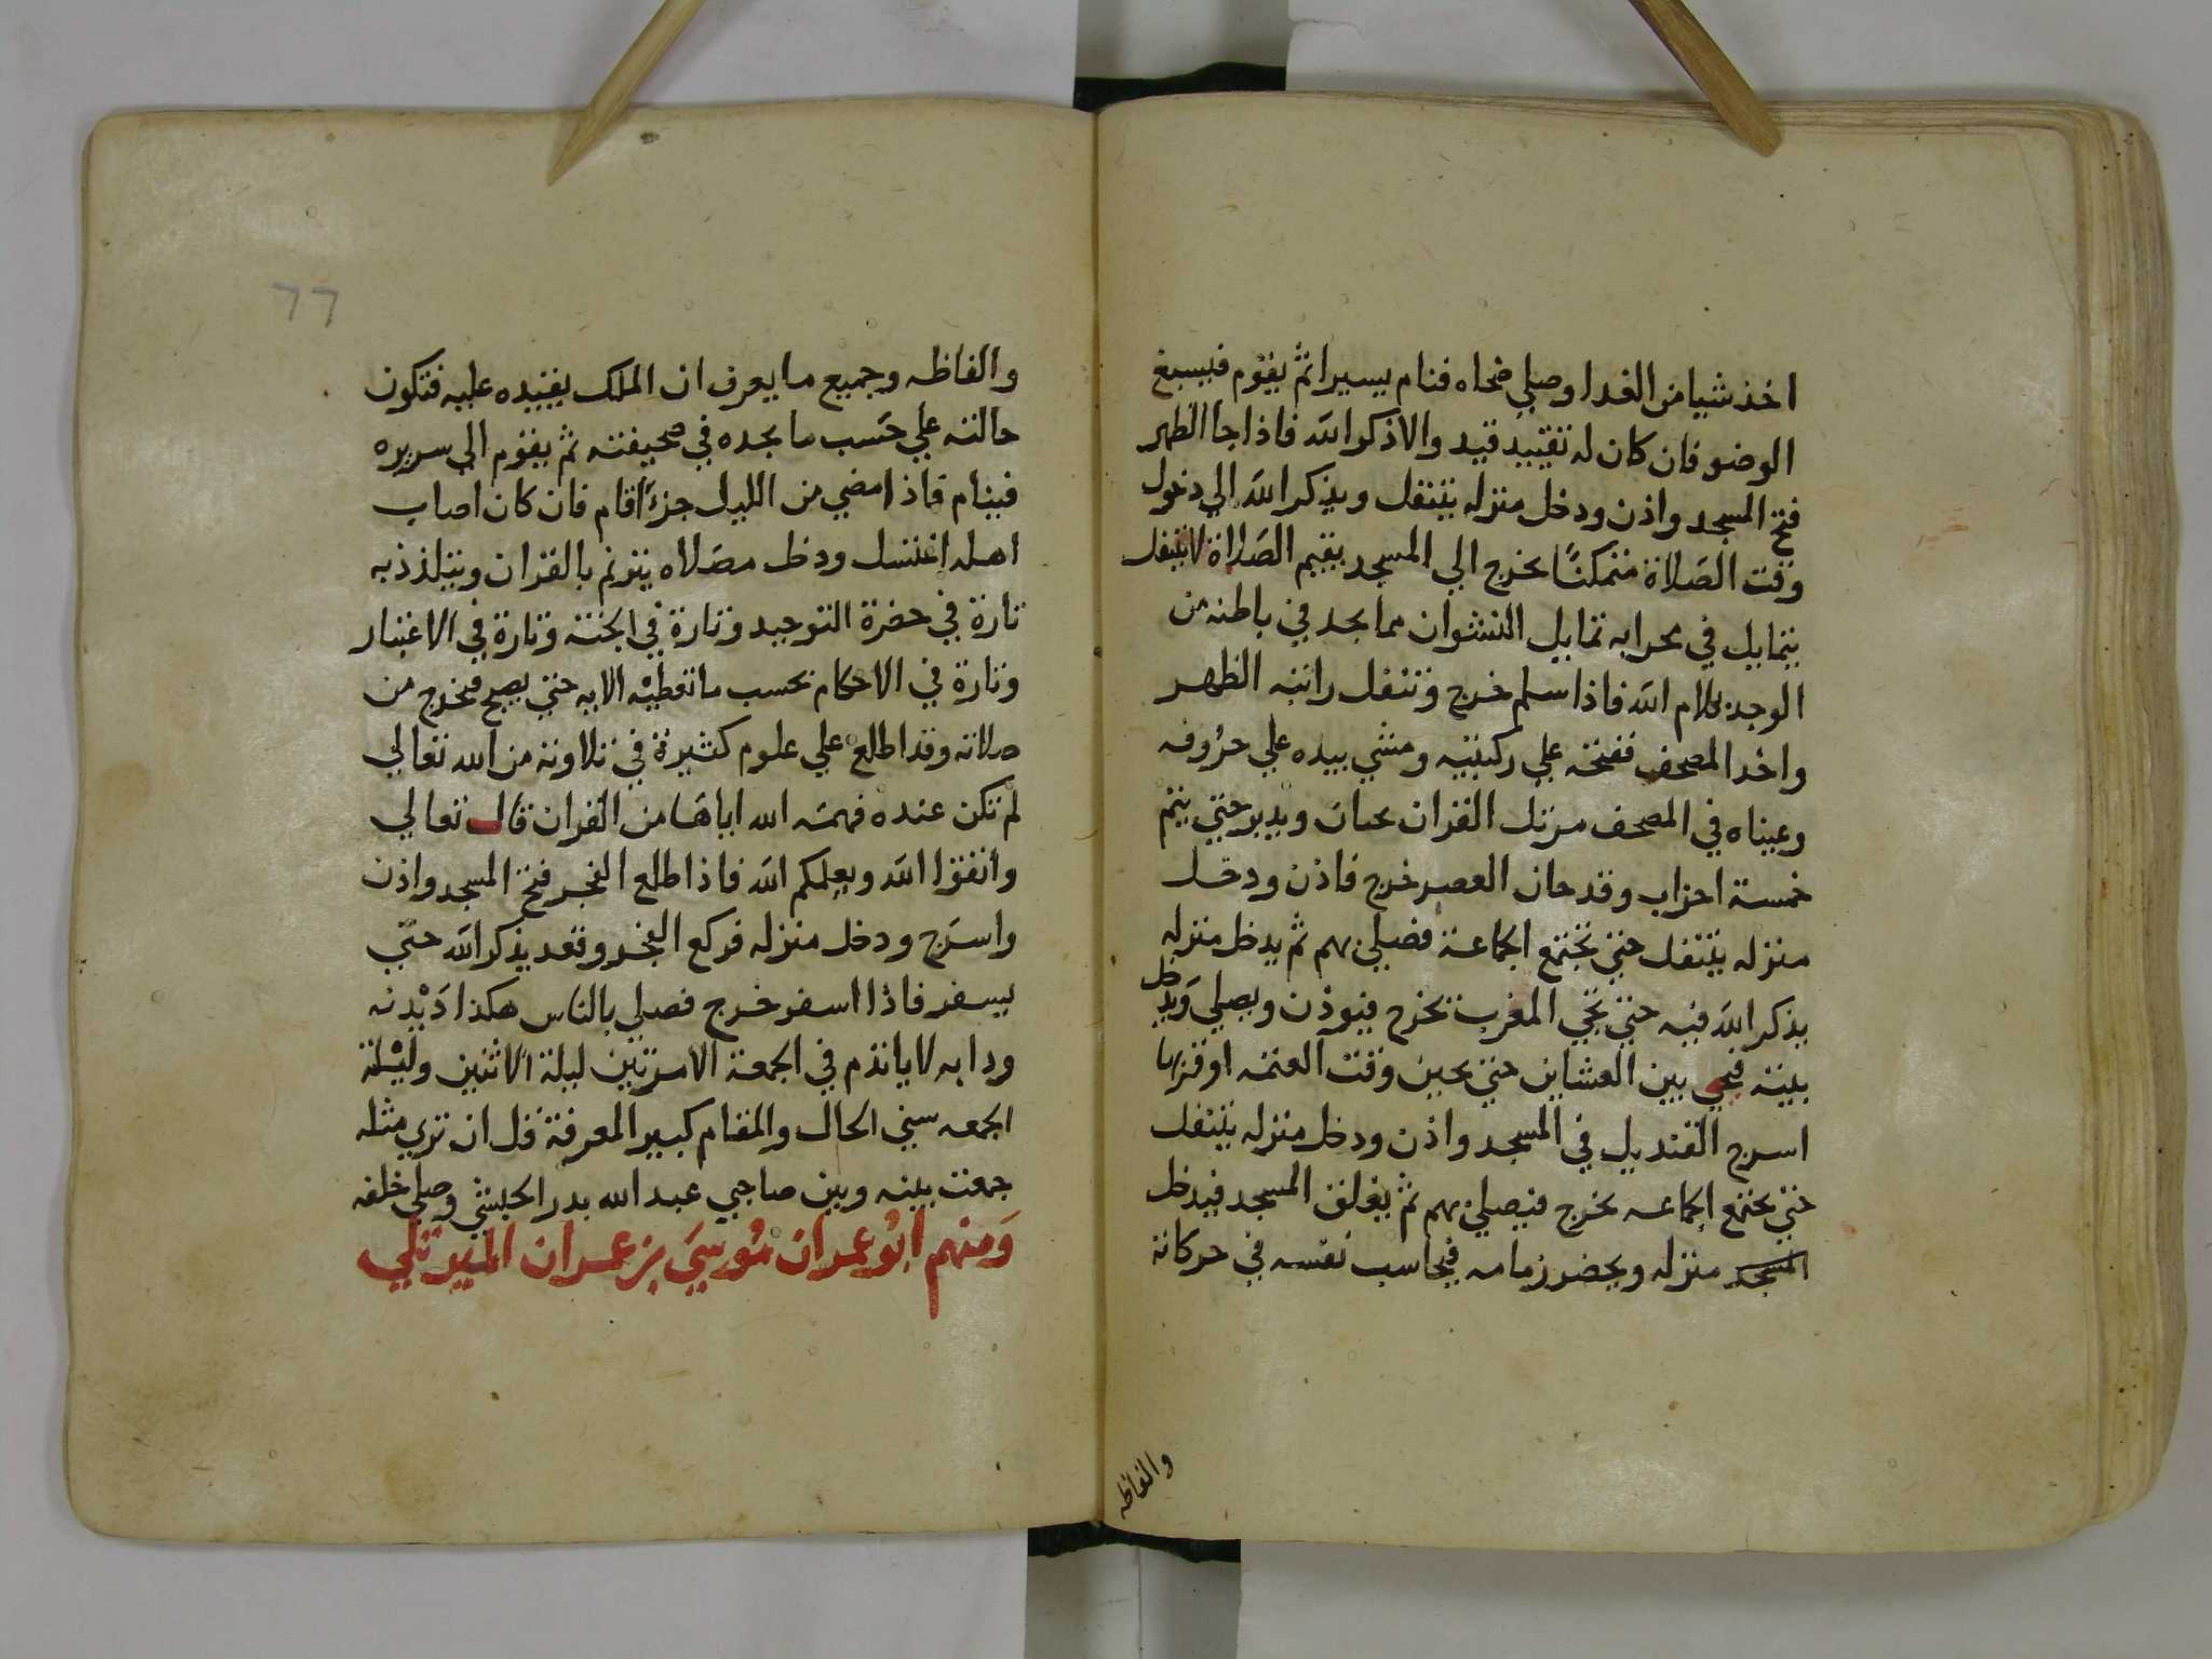 اخذ شيا من الغدا وصلي ضحاه فنام يسيرا ثم يقوم فيسبغ
الوضو فان كان له تقييد قيد والا ذكر الله فاذا جا الظهر
فتح المسجد واذن ودخل منزله يتنفل ويذكر الله الي دخول
وقت الصلاة متمكنًا يخرج الي المسجد يقيم الصلاة لا يتنفل
يتمايل في محرابه تمايل النشوان مما يجد في باطنه من
الوجد بكلام الله فاذا سلم خرج وتنفل راتبه الظهر
واخد المصحف ففتحه علي ركبتيه ومشي بيده علي حروفه
وعيناه في المصحف مرتل القران ويدبر حتي يتم
خمسة احزاب وقد حان العصر خرج فاذن ودخل
منزله يتنفل حتي تجتمع الجماعة فصلي بهم ثم يدخل منزله
يذكر الله فيه حتي تجي المغرب تخرج فيوذن ويصلي ويدخل
بيته فيحيي بين العشاين حتي يحين وقت العتمه او قربها
اسرج القنديل في المسجد واذن ودخل منزله يتنفل
حتي تجتمع الجماعه يخرج فيصلي بهم ثم يغلق المسجد فيدخل
المسجد منزله ويحضر زمامه فيحاسب نفسه في حركاته
والفاظه
٦٦
والفاظه وجميع ما يعرف ان الملك يقيده عليه فتكون
حالته علي حَسب ما يجده في صحيفته ثم يقوم الي سريره
فينام فاذا مضي من الليل جزءًا قام فان كان اصاب
اهله اغتسل ودخل مصَلاه يترنم بالقران ويتلذذ به
تارة في حضرة التوحيد وتارة في الجنة وتارة في الاعتبار
وتارة في الاحكام بحسب ما تعطيْه الايه حتي يصبح فيخرج من
صلاته وقد اطلع علي علوم كثيرة في تلاوته من الله تعالي
لم تكن عنده فهمَه الله اياهَا من القران قال تعالي
واتقوا الله ويعلمكم الله فاذا طلع الفجر فتح المسجد واذن
واسرَج ودخل منزله فركع الفجر وقعد يذكر الله حتي
يسفر فاذا اسفر خرج فصلي بالناس هكذا دَيْدنه
ودابه لا ياتدم في الجمعة الا مرتين ليلة الاثنين وليْلة
الجمعه سني الحال والمقام كبير المعرفة قل ان تري مثله
جمعت بينه وبين صاحبي عبد الله بدر الحبشي وصلي خلفه
وَمنهم ابُو عمران مُوسيَ بن عمران الميرتلي